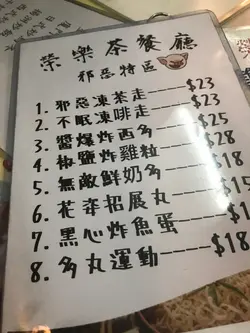 榮樂茶餐廳
邪惡特區
1. 邪惡凍茶走----$23
2. 不眠凍啡走----$23
3. 醬爆炸西多----$25
4. 椒鹽炸雞粒----$28
5. 無敵鮮奶多----$15
6. 花姿招展丸----$18
7. 黑心炸魚蛋----$18
8. 多丸運動----$18